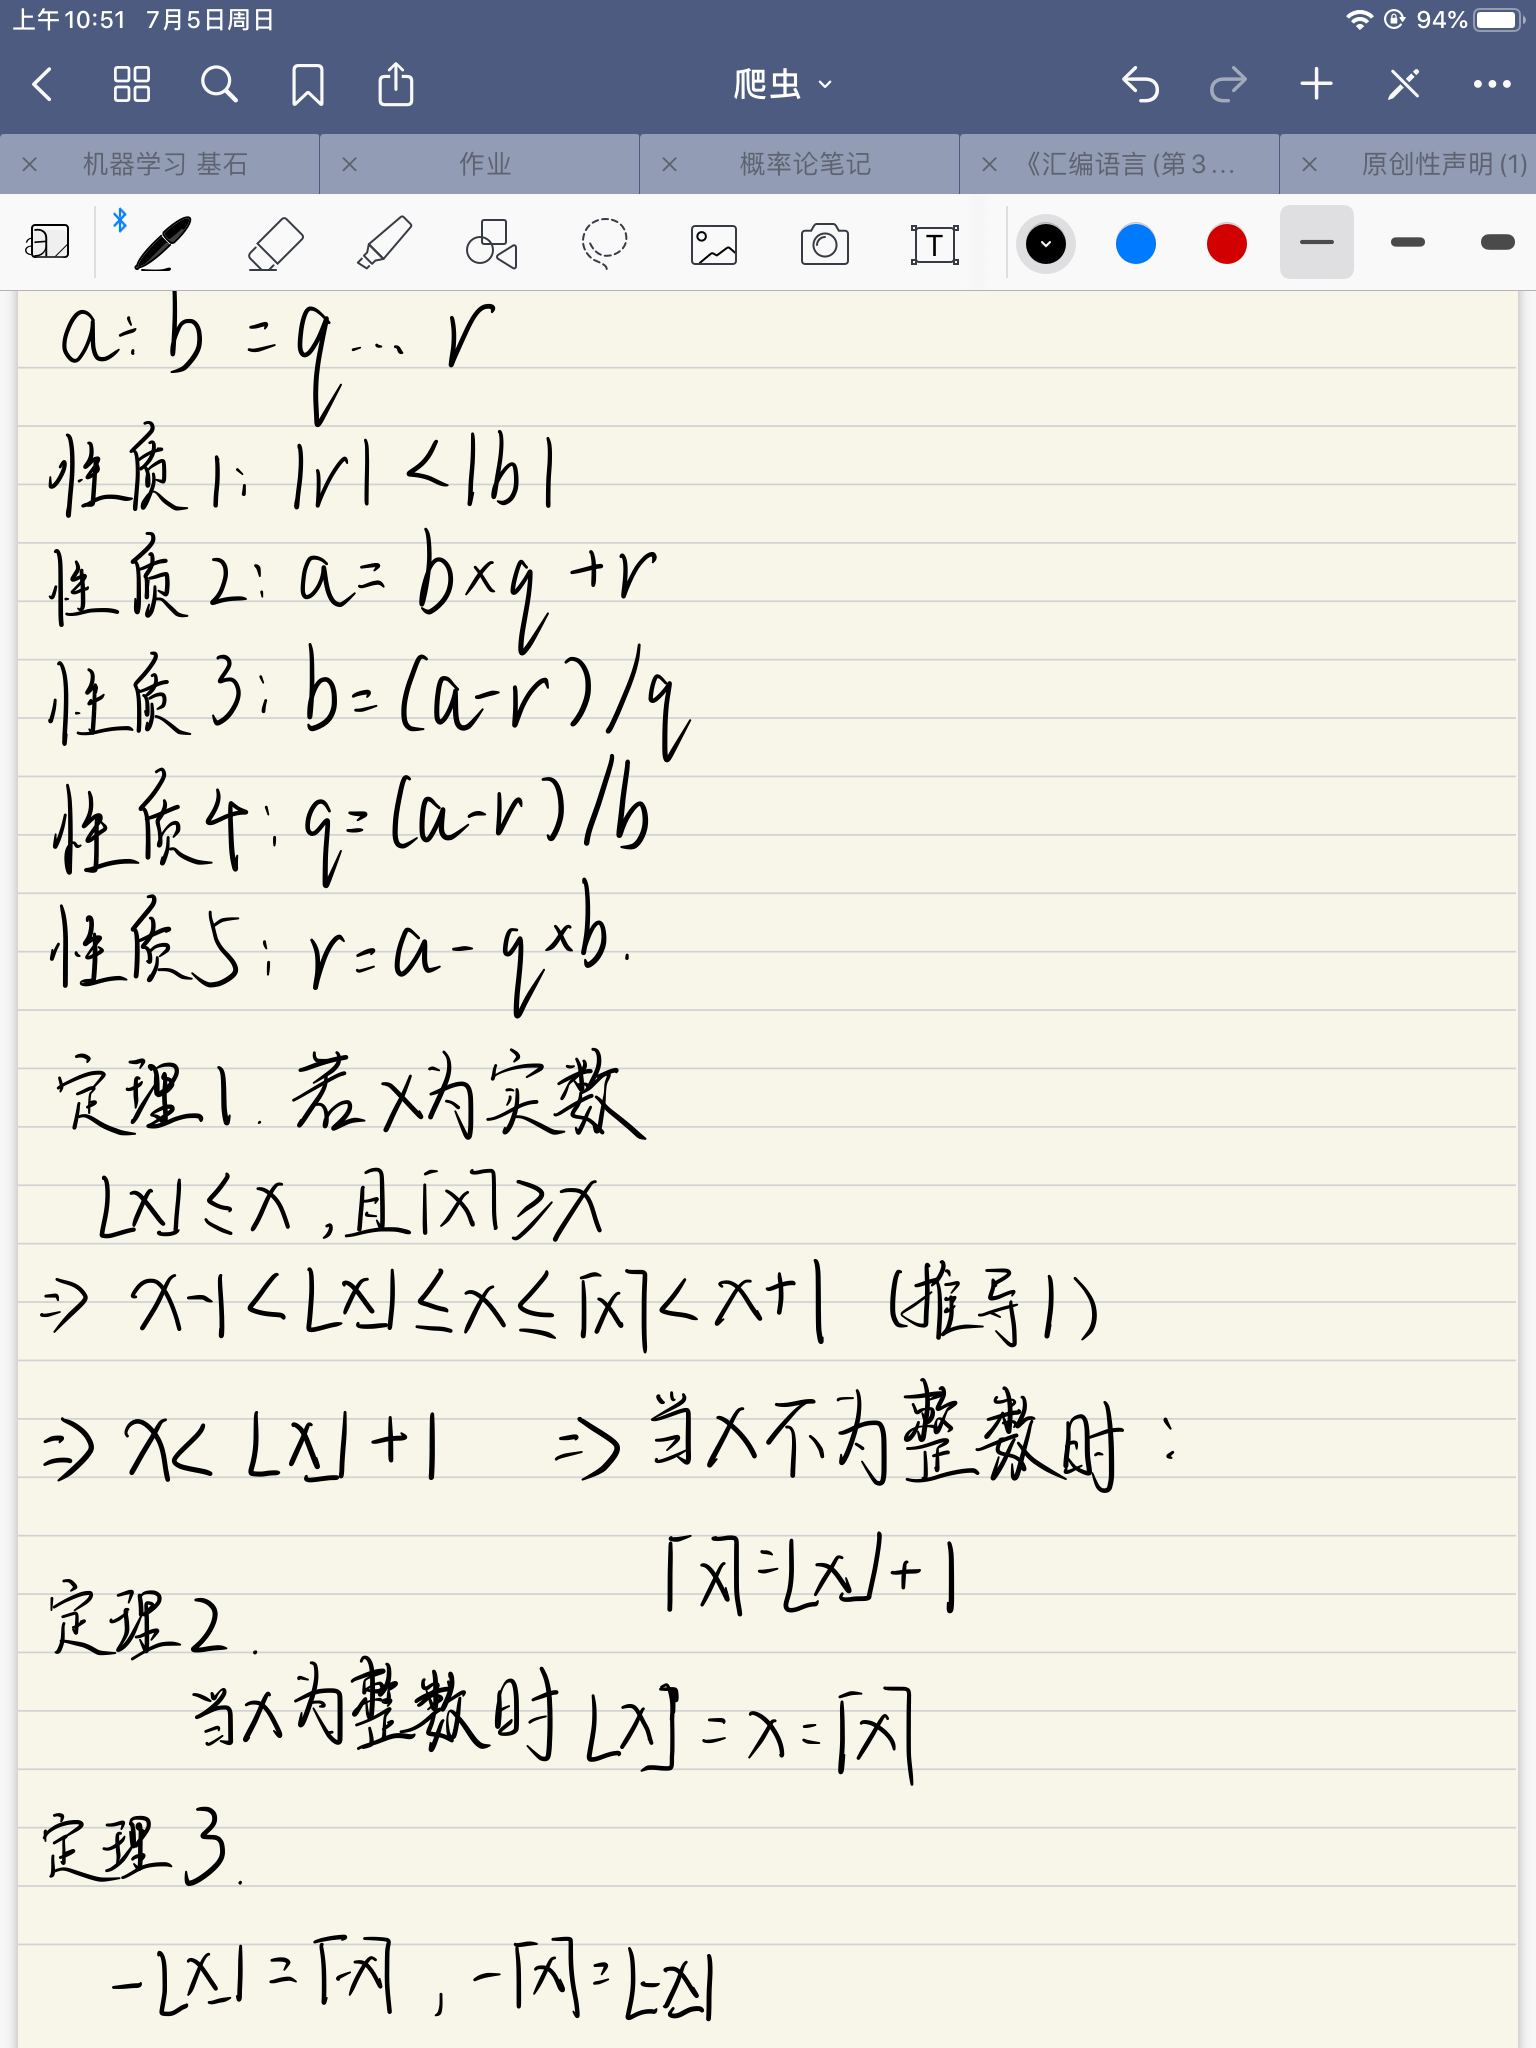 上午10:51 7月5日周日 94%
爬虫
机器学习 基石 作业 概率论笔记 《汇编语言 (第 3 ... 原创性声明 (1)
T
a÷b = q ... r
性质1: |r| < |b|
性质2: a = b×q + r
性质3: b = (a-r)/q
性质4: q = (a-r)/b
性质5: r = a - q×b.
定理1. 若x为实数
⌊x⌋ ≤ x ,且⌈x⌉ ≥ x
⇒ x-1 < ⌊x⌋ ≤ x ≤ ⌈x⌉ < x+1 (推导1)
⇒ x < ⌊x⌋ + 1 ⇒ 当x不为整数时:
⌈x⌉ = ⌊x⌋ + 1
定理2.
当x为整数时 ⌊x⌋ = x = ⌈x⌉
定理3.
-⌊x⌋ = ⌈-x⌉ , -⌈x⌉ = ⌊-x⌋